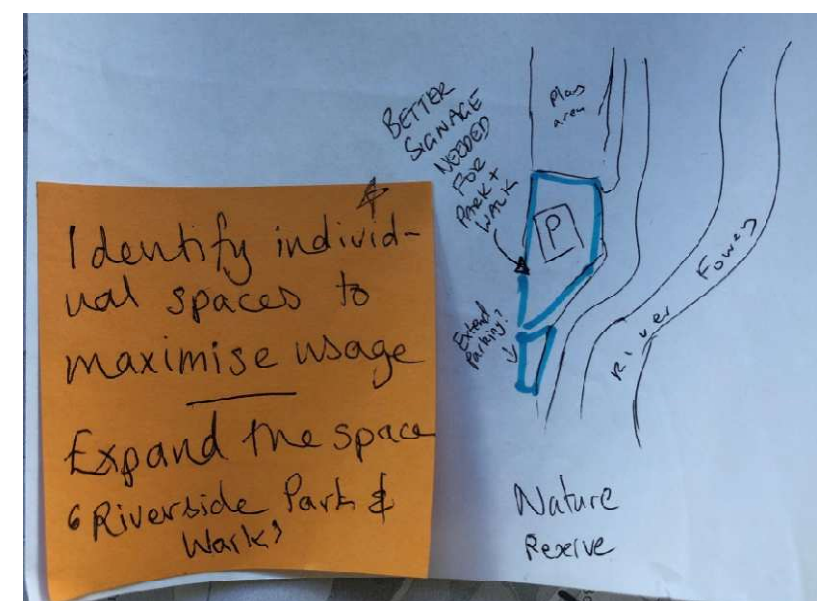 Identify individ-
ual spaces to
maximise usage
Expand the space
'Riverside Park &
Walk'
BETTER
SIGNAGE
NEEDED
FOR
PARK +
WALK
Play
area
P
Extend
parking?
River Fowey
Nature
Reserve